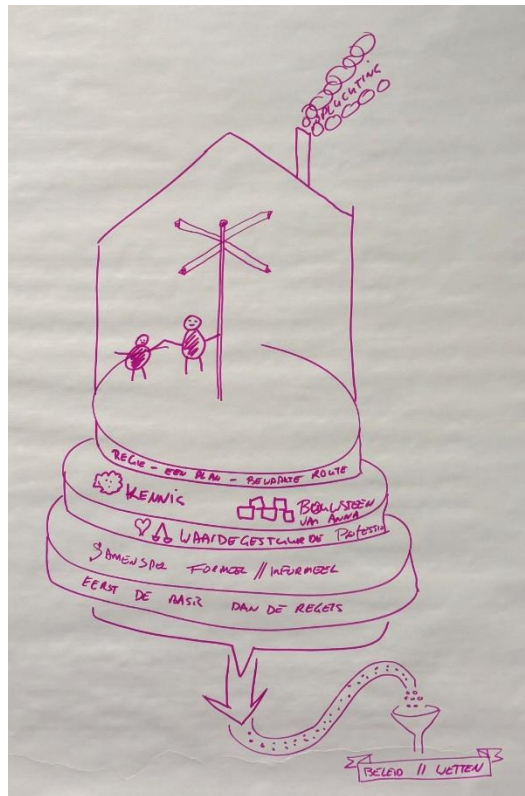 REGIE - EEN PLAN - BEPAALDE ROUTE
KENNIS
BOUWSTEEN
VAN ANNA
WAARDEGESTUURDE PROFESSIE
SAMENSPEL FORMEEL // INFORMEEL
EERST DE BASIS DAN DE REGELS
BELEID // WETTEN